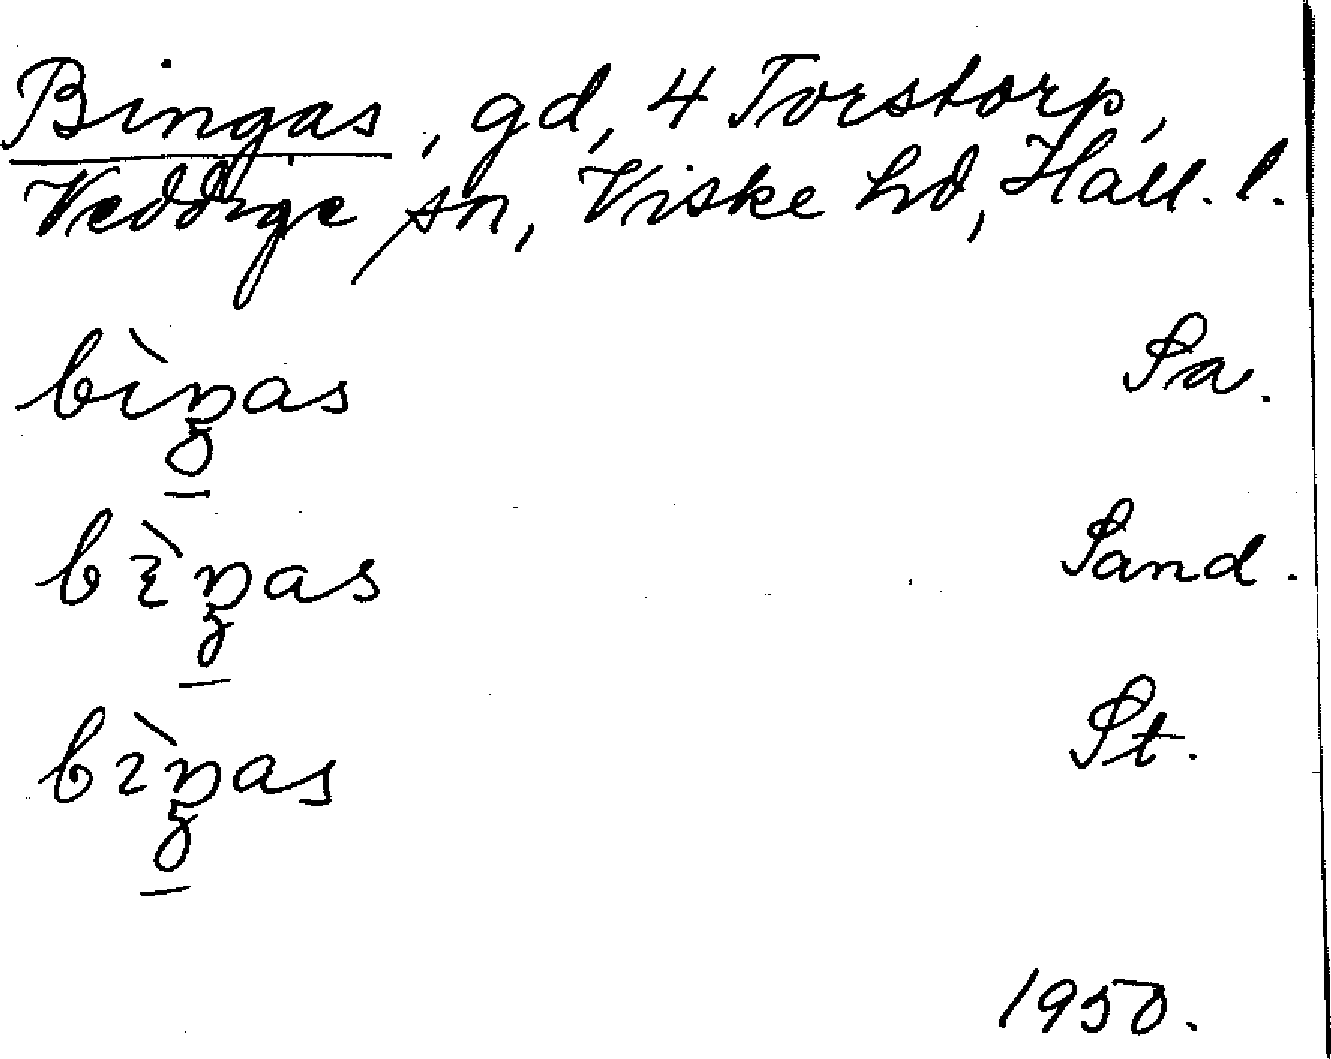 Bingas, gd, 4 Torstorp,
Veddige sn, Viske hd, Hall. l.
bìŋas Sa.
bɪ̀ŋas Sand.
bìŋas St.
1950.